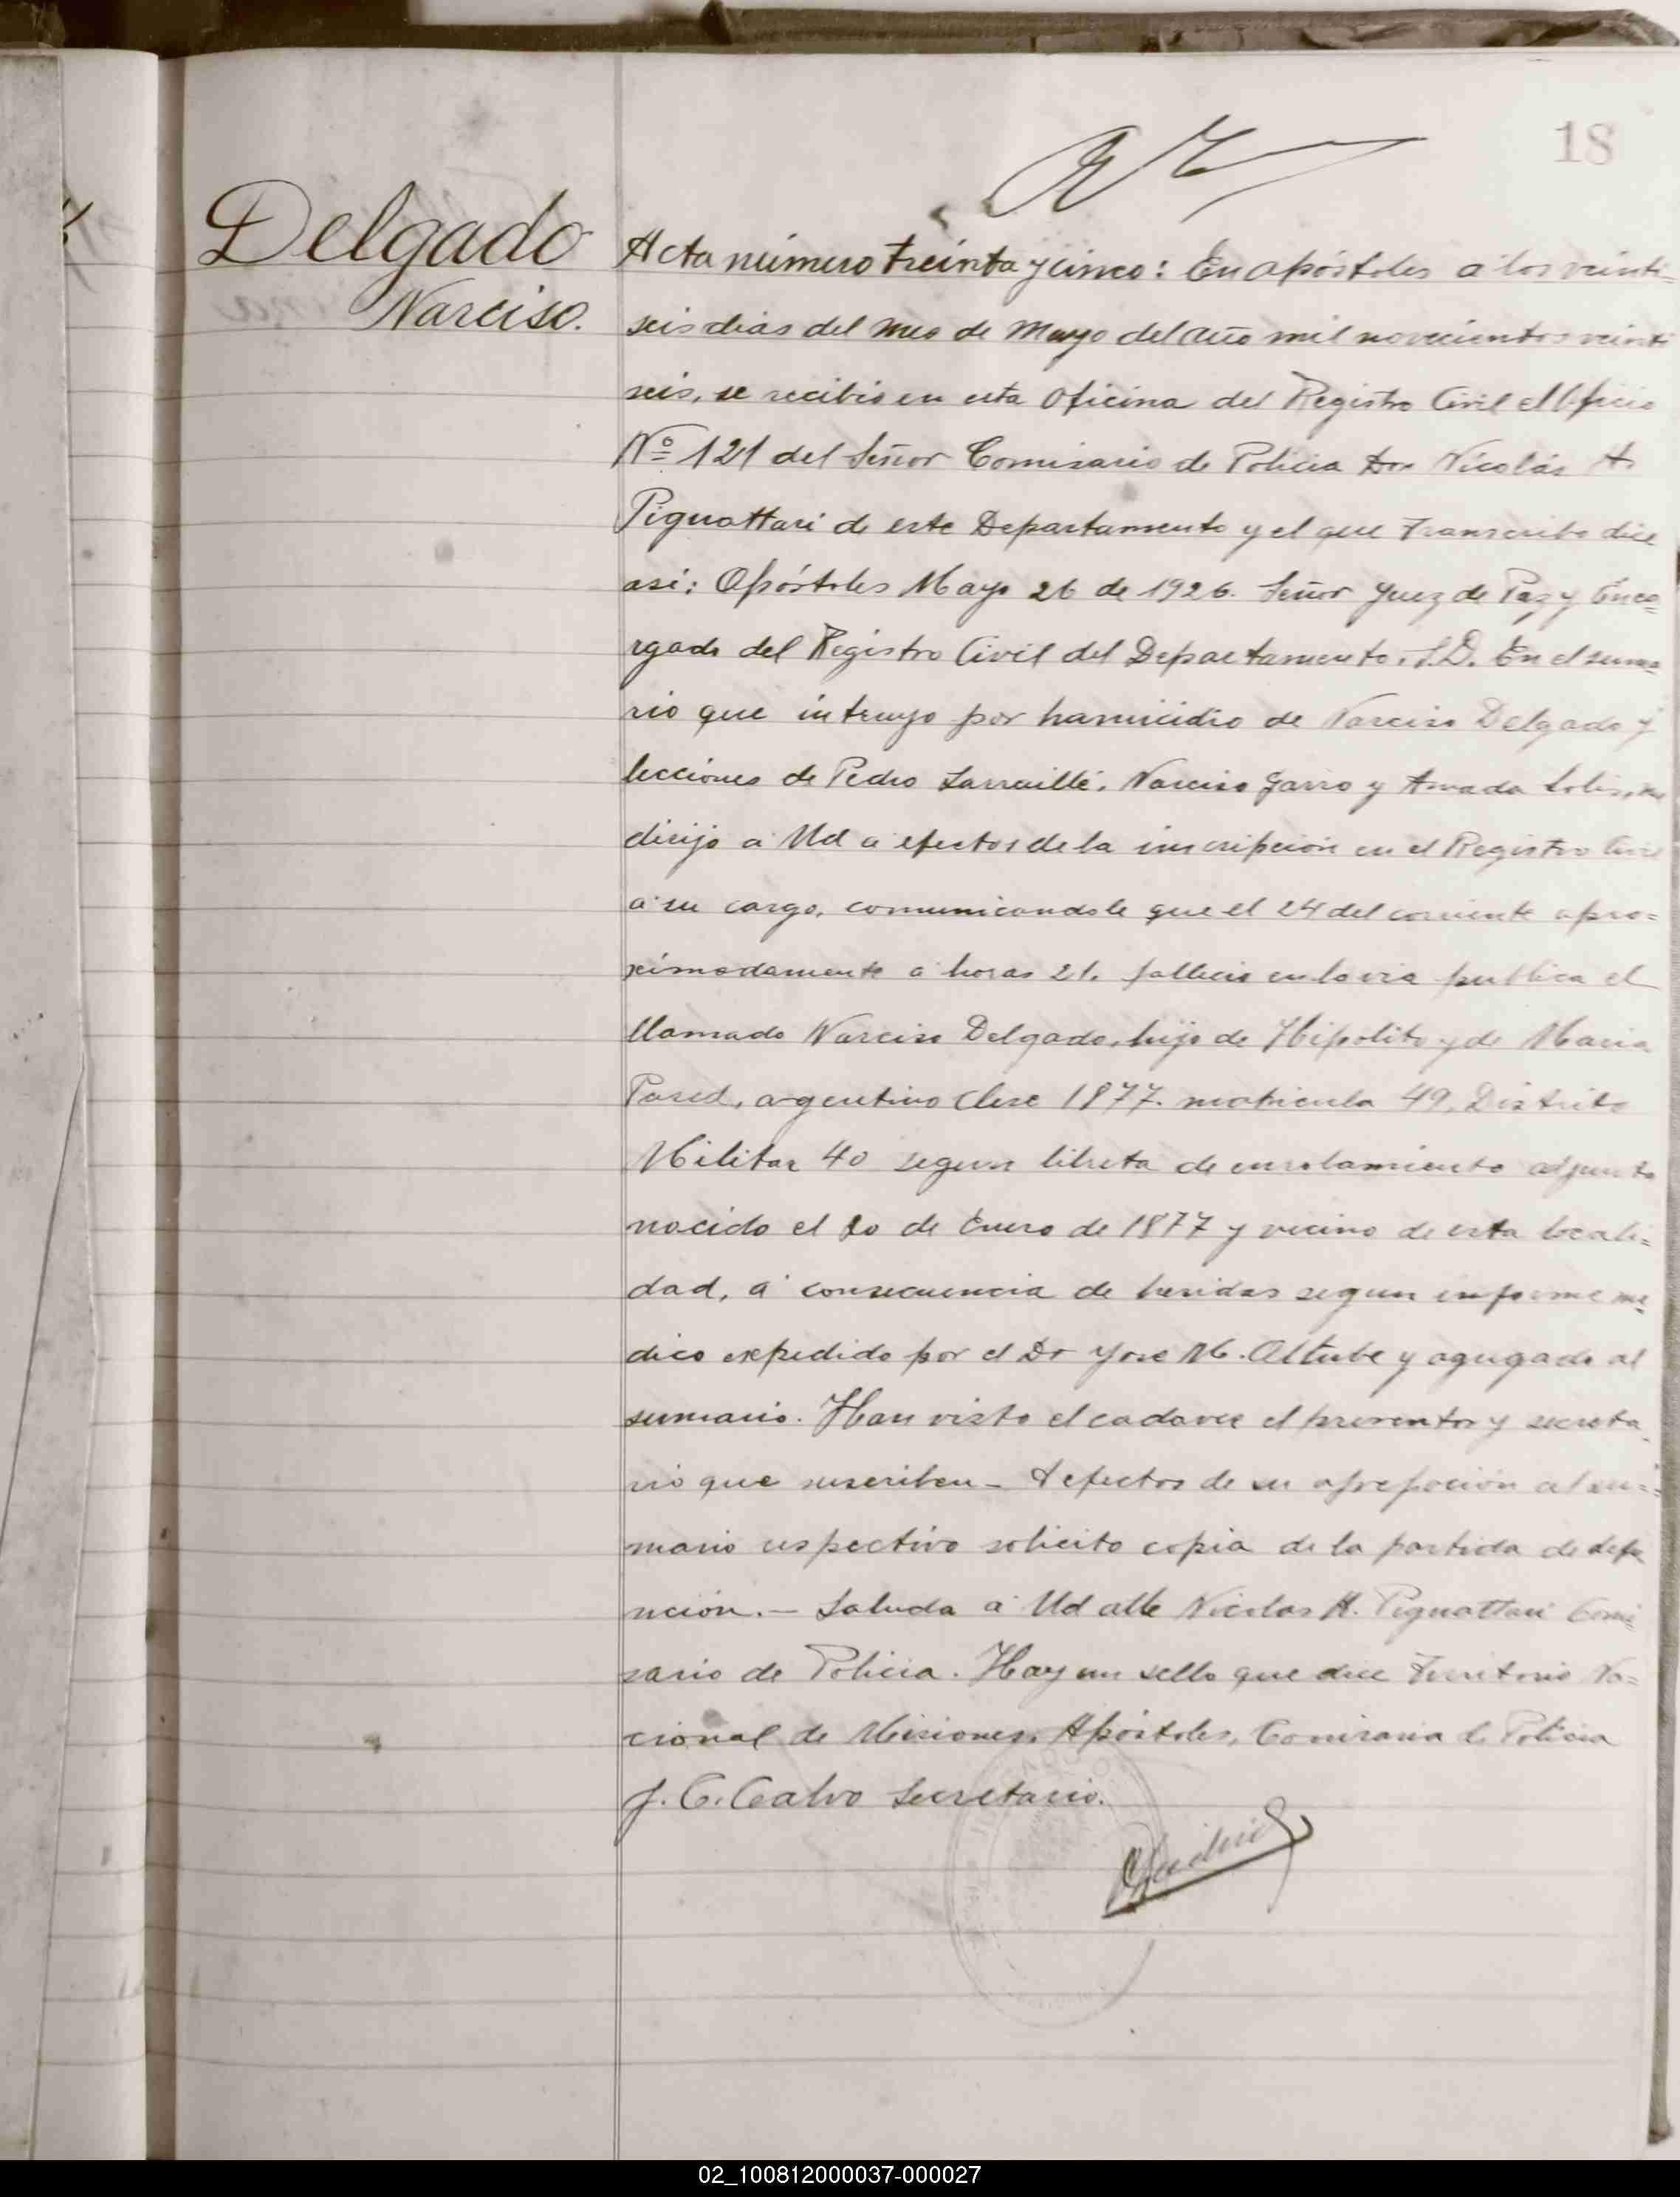 18
Delgado
Narciso.
Acta número treinta y cinco: En apóstoles a los veinti=
seis dias del mes de Mayo del año mil novecientos veinti
seis, se recibio en esta Oficina del Registro Civil el Oficio
Nº 121 del Señor Comisario de Policia Don Nicolás A.
Pignattari de este Departamento y el que transcrito dice
asi: Apóstoles Mayo 26 de 1926. Señor Juez de Paz y Enca=
rgado del Registro Civil del Departamento. S.D. En el suma=
rio que intruyo por hamicidio de Narciso Delgado y
lecciones de Pedro Larraillé, Narciso Garro y Amada Solis, me
dirijo a Ud a efectos de la inscripción en el Registro Civil
a su cargo, comunicandole que el 24 del corriente apro=
ximadamente a horas 21. fallecio en la via publica el
llamado Narciso Delgado, hijo de Hipolito y de Maria
argentino clase 1877. matricula 49, Distrito
Militar 40 segun libreta de enrolamiento adjunta
nacido el 20 de Enero de 1877 y vecino de esta locali=
dad, a consecuencia de heridas segun informe me=
dico expedido por el Dr Jose M. Altube y agregado al
sumario. Han visto el cadaver el y secreta
rio que suscriben - A efectos de su al su=
mario respectivo solicito copia de la partida de defu
nción. - Saluda a Ud atte Nicolas A. Pignattari Comi=
sario de Policia. Hay un sello que dice Territorio Na=
cional de Misiones, Apóstoles, Comisaria de Policia
J. C. Calvo Secretario.
02_100812000037-000027